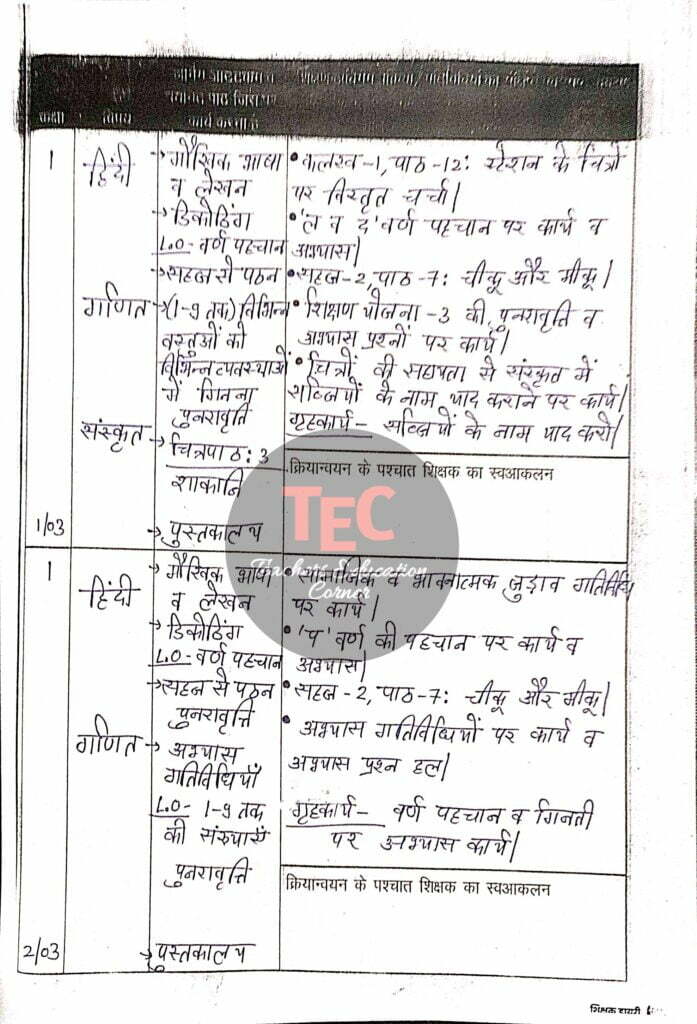 कक्षा विषय कार्य करना है
1 हिंदी
→ मौखिक भाषा
व लेखन
→ डिकोडिंग
L.O - वर्ण पहचान
→ सहज से पठन
• कलरव -1, पाठ -12: स्टेशन के चित्रों
पर विस्तृत चर्चा|
• 'ल व द' वर्ण पहचान पर कार्य व
अभ्यास|
• सहज -2, पाठ -7: चीकू और मीकू|
गणित
→ (1-9 तक) विभिन्न
वस्तुओं को
विभिन्न व्यवस्थाओं
में गिनना
पुनरावृति
• शिक्षण योजना -3 की पुनरावृति व
अभ्यास प्रश्नों पर कार्य|
संस्कृत
→ चित्रपाठ: 3
शाकानि
• चित्रों की सहायता से संस्कृत में
सब्जियों के नाम याद कराने पर कार्य|
गृहकार्य - सब्जियों के नाम याद करो|
क्रियान्वयन के पश्चात शिक्षक का स्वआकलन
1/03
→ पुस्तकालय
TEC
Teachers Education
Corner
1 हिंदी
→ मौखिक भाषा
व लेखन
→ डिकोडिंग
L.O - वर्ण पहचान
→ सहज से पठन
पुनरावृत्ति
• सामाजिक व भावनात्मक जुड़ाव गतिविधि
पर कार्य|
• 'प' वर्ण की पहचान पर कार्य व
अभ्यास|
• सहज -2, पाठ -7: चीकू और मीकू|
गणित
→ अभ्यास
गतिविधियाँ
L.O - 1-9 तक
की संख्याएं
पुनरावृत्ति
• अभ्यास गतिविधियों पर कार्य व
अभ्यास प्रश्न हल|
गृहकार्य - वर्ण पहचान व गिनती
पर अभ्यास कार्य|
क्रियान्वयन के पश्चात शिक्षक का स्वआकलन
2/03
→ पुस्तकालय
शिक्षक डायरी